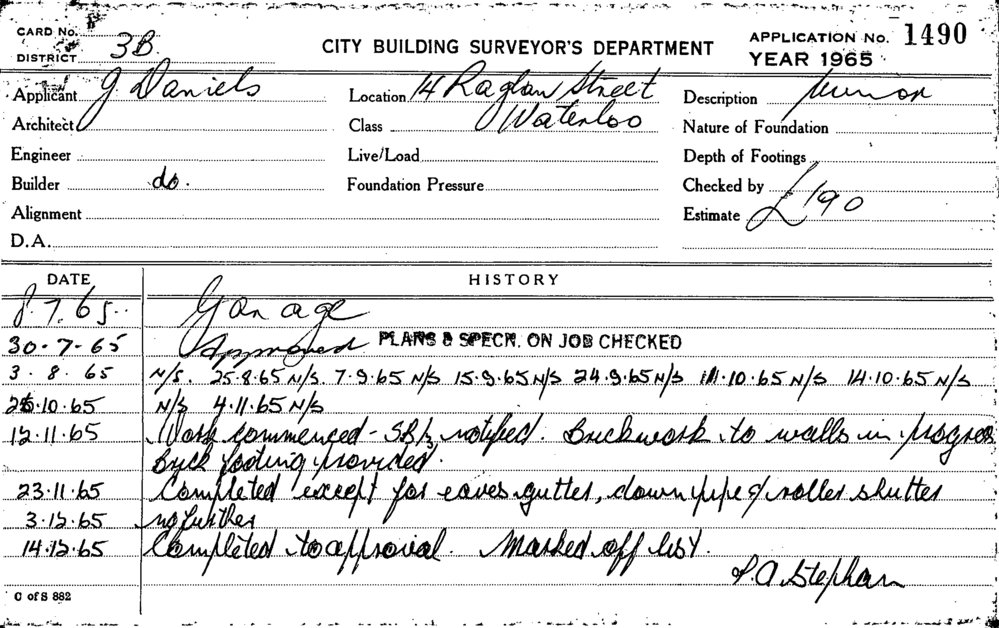 CARD No.
DISTRICT 3B.
CITY BUILDING SURVEYOR'S DEPARTMENT
APPLICATION No. 1490
YEAR 1965
Applicant J Daniels Location 14 Raglan Street Description
Architect Class Waterloo Nature of Foundation
Engineer Live/Load Depth of Footings
Builder do. Foundation Pressure Checked by
Alignment Estimate £190
D.A.
DATE HISTORY
8.7.65.. Garage
30-7-65 Approved PLANS & SPECN. ON JOB CHECKED
3.8.65 N/S. 25.8.65 N/S. 7.9.65 N/S 15.9.65 N/S 24.9.65 N/S 11.10.65 N/S 14.10.65 N/S
25.10.65 N/S 4.11.65 N/S
12.11.65 Work commenced - notified. Brickwork to walls in progress
Brick footing provided.
23.11.65 Completed except for eaves gutter, downpipe & roller shutter
3.12.65 no further
14.12.65 Completed to approval. Marked off list.
P.A Stephan
C of S 882